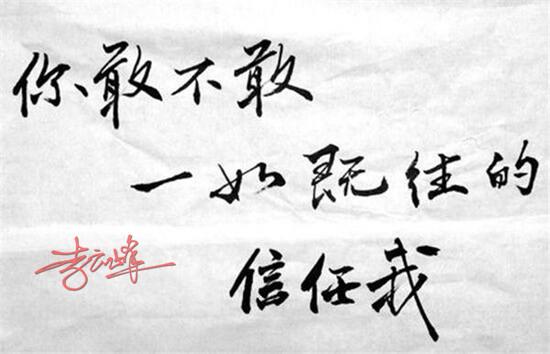 你敢不敢
一如既往的
信任我
李云峰